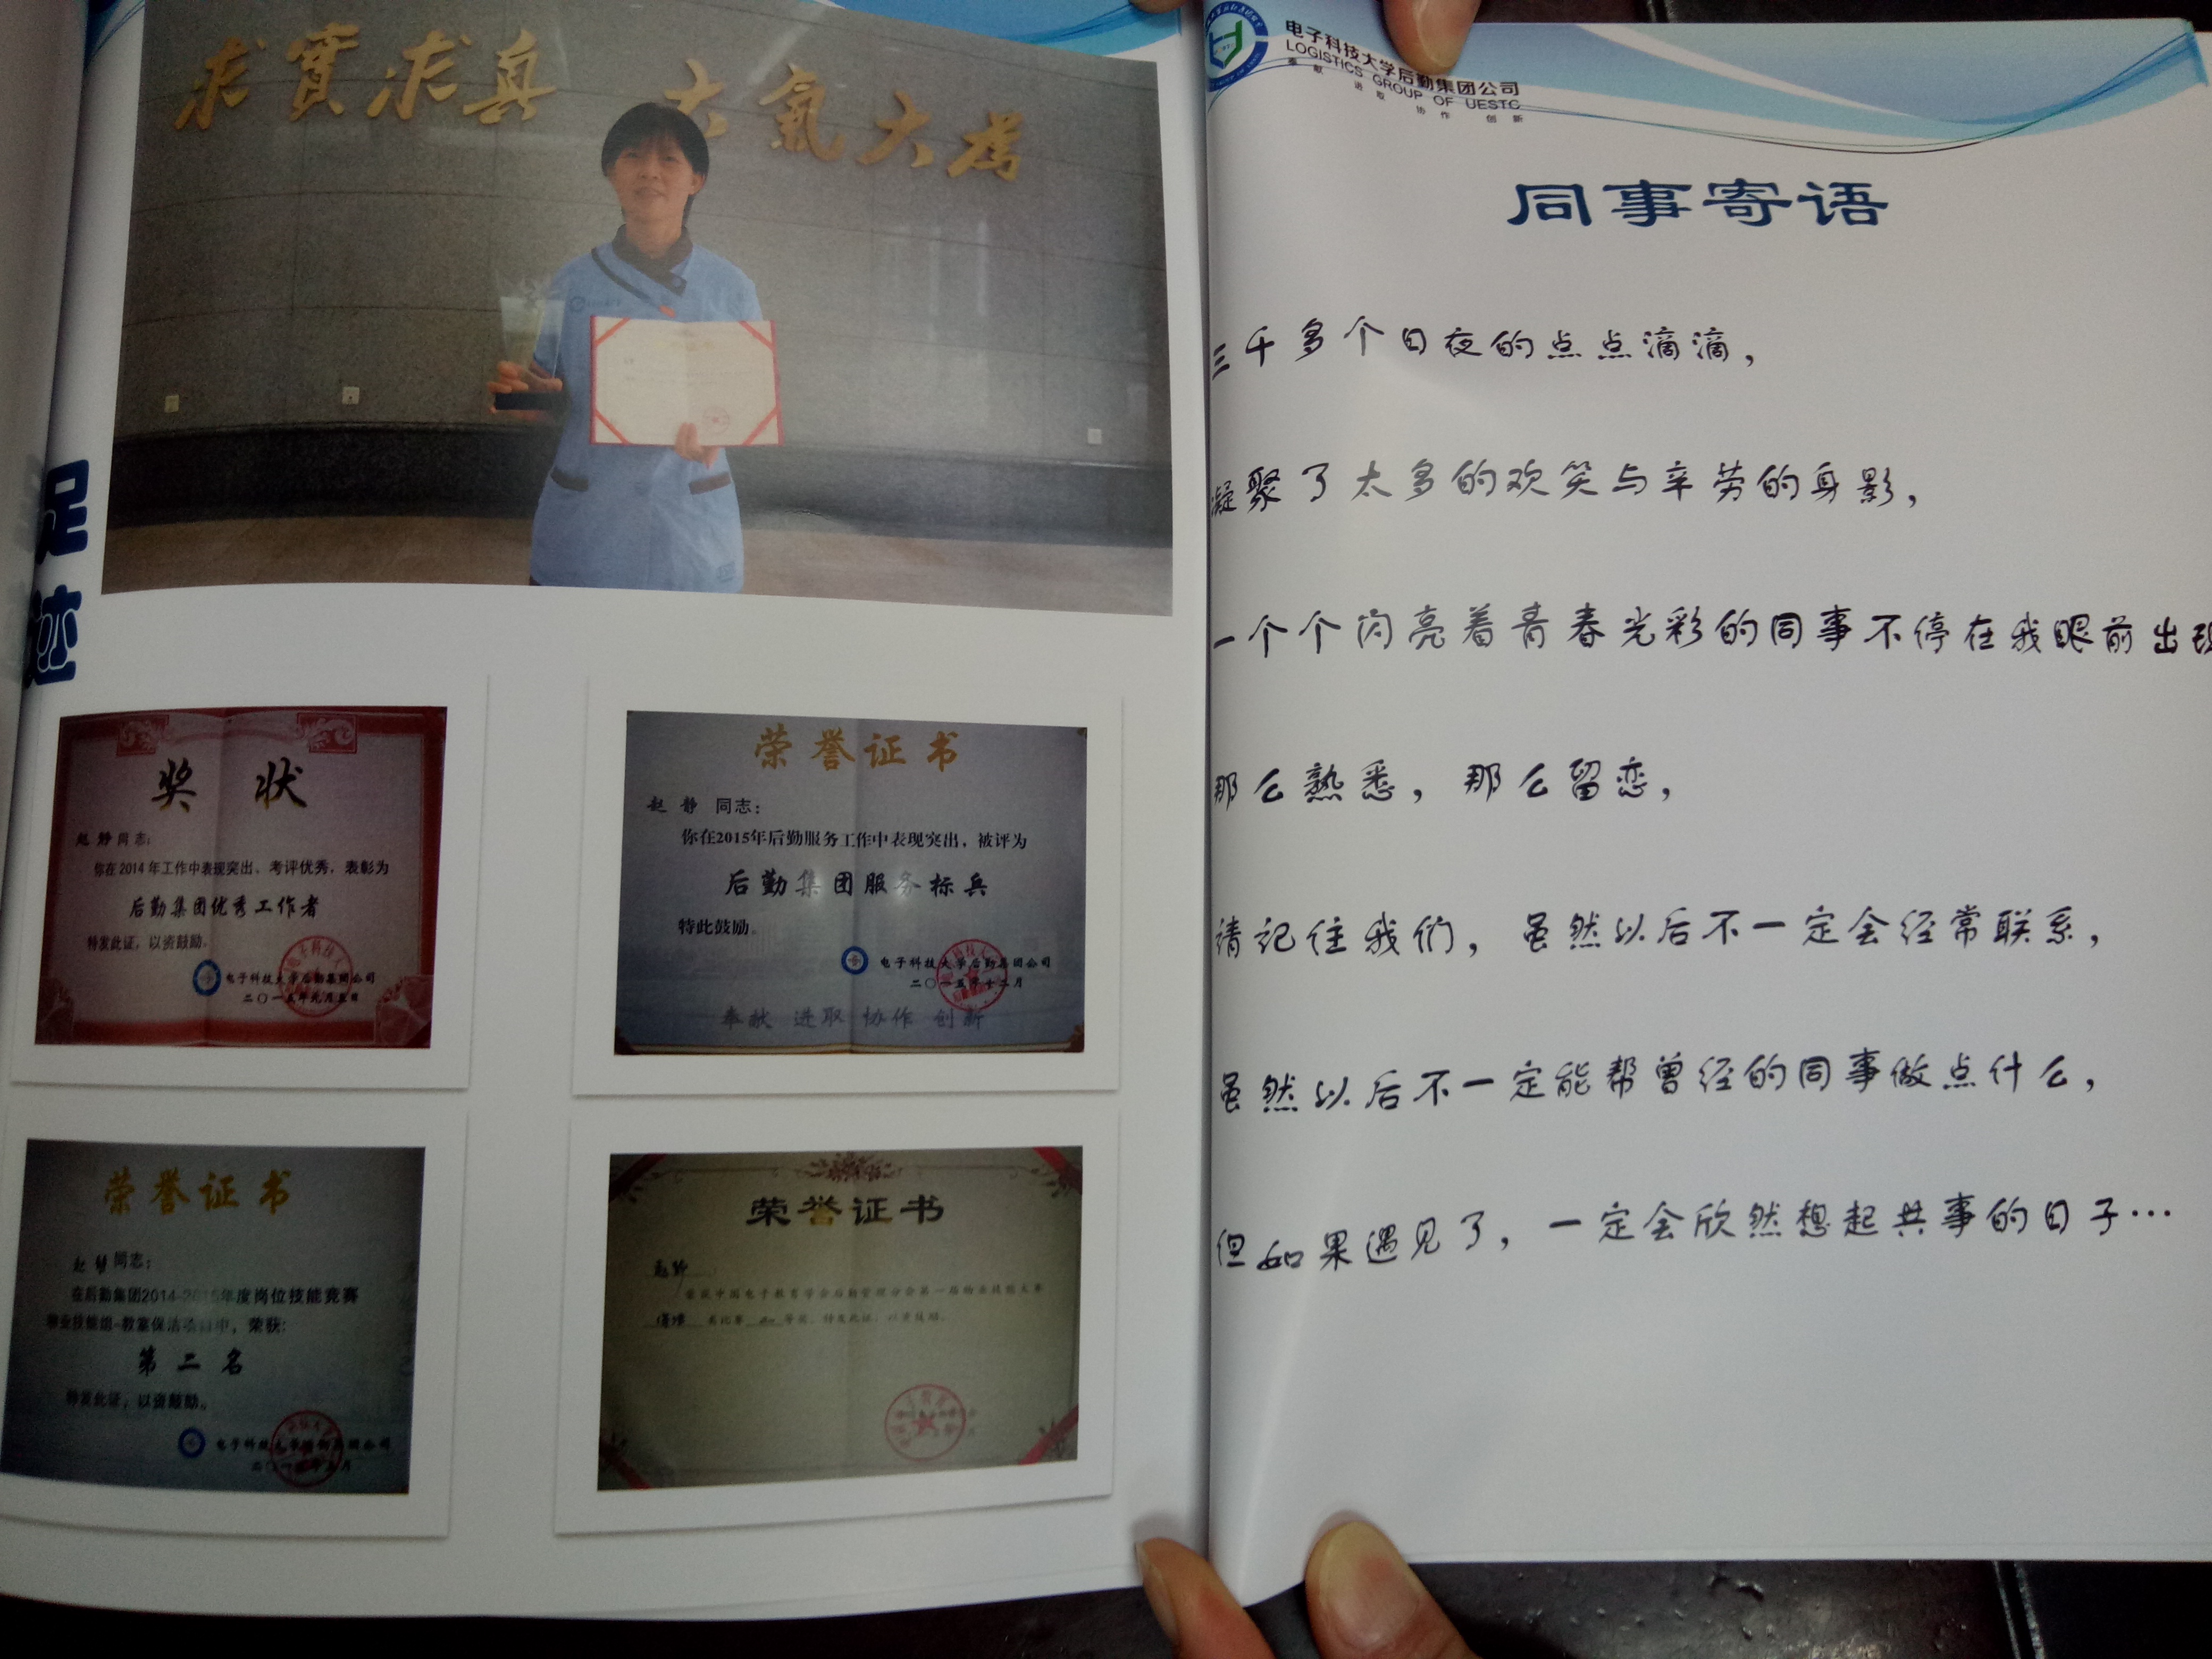 求實求真 大氣大為
足
迹
奖 状
赵静同志：
你在2014年工作中表现突出、考评优秀，表彰为
后勤集团优秀工作者
特发此证，以资鼓励。
电子科技大学后勤集团公司
二〇一五年元月五日
荣誉证书
赵静 同志：
你在2015年后勤服务工作中表现突出，被评为
后勤集团服务标兵
特此鼓励。
电子科技大学后勤集团公司
二〇一五年十二月
奉献 进取 协作 创新
荣誉证书
赵静同志：
在后勤集团2014-2015年度岗位技能竞赛
物业技能组-教室保洁项目中，荣获：
第二名
特发此证，以资鼓励。
电子科技大学后勤集团公司
荣誉证书
荣获中国电子教育学会后勤管理分会第一届物业技能大赛
等奖，特发此证，以资鼓励。
电子科技大学后勤集团公司
LOGISTICS GROUP OF UESTC
奉献 进取 协作 创新
同事寄语
三千多个日夜的点点滴滴，
凝聚了太多的欢笑与辛劳的身影，
一个个闪亮着青春光彩的同事不停在我眼前出现
那么熟悉，那么留恋，
请记住我们，虽然以后不一定会经常联系，
虽然以后不一定能帮曾经的同事做点什么，
但如果遇见了，一定会欣然想起共事的日子…